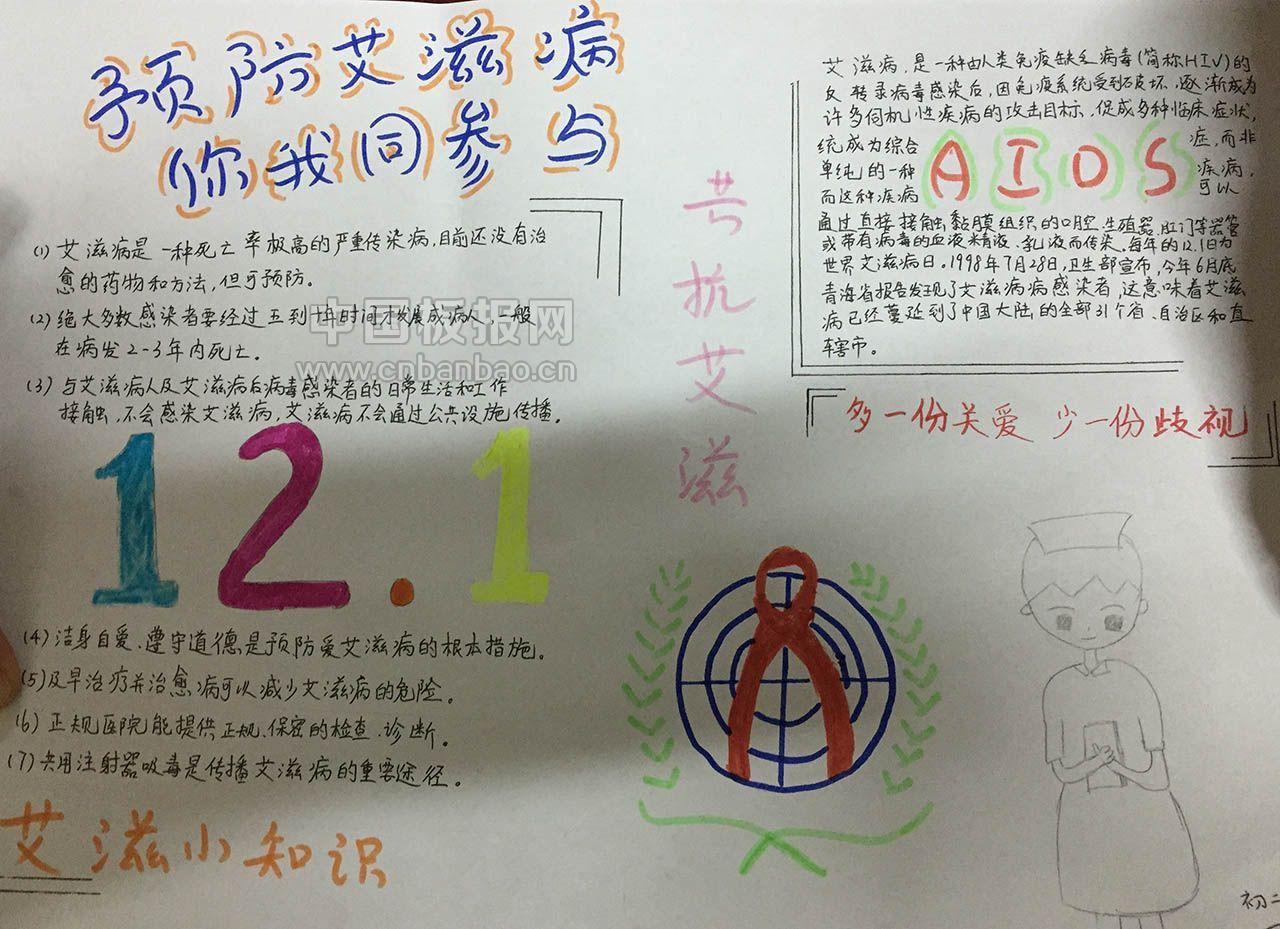 预防艾滋病
你我同参与
(1) 艾滋病是一种死亡率极高的严重传染病,目前还没有治
愈的药物和方法,但可预防。
(2) 绝大多数感染者要经过五到十年时间才发展成病人,一般
在病发2-3年内死亡.
(3) 与艾滋病人及艾滋病后病毒感染者的日常生活和工作
接触,不会感染艾滋病,艾滋病不会通过公共设施传播。
中国板报网
www.cnbanbao.cn
12.1
(4) 洁身自爱、遵守道德是预防爱艾滋病的根本措施。
(5) 及早治疗并治愈病可以减少艾滋病的危险。
(6) 正规医院能提供正规、保密的检查、诊断。
(7) 共用注射器吸毒是传播艾滋病的重要途径。
艾滋小知识
抗艾滋
艾滋病,是一种由人类免疫缺乏病毒(简称HIV)的
反转录病毒感染后,因免疫系统受到破坏,逐渐成为
许多伺机性疾病的攻击目标,促成多种临床症状,
统成为综合 症,而非
单纯的一种 疾病,
而这种疾病 可以
AIDS
通过直接接触黏膜组织的口腔、生殖器、肛门等器管
或带有病毒的血液、精液、乳液而传染。每年的12.1日为
世界艾滋病日。1998年7月28日,卫生部宣布,今年6月底
青海省报告发现了艾滋病病感染者,这意味着艾滋
病已经蔓延到了中国大陆的全部31个省、自治区和直
辖市。
多一份关爱 少一份歧视
初二